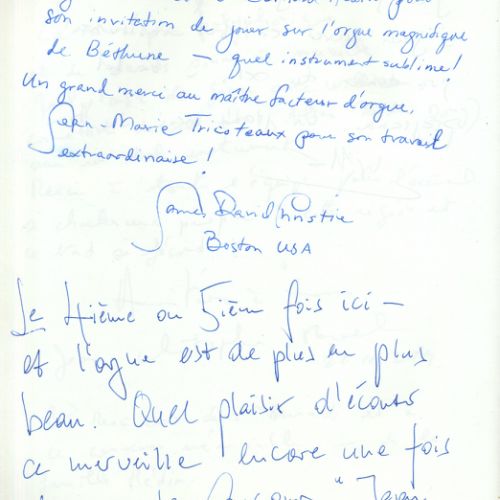 son invitation de jouer sur l'orgue magnifique
de Béthune — quel instrument sublime!
Un grand merci au maître facteur d'orgue,
Jean-Marie Tricoteaux pour son travail
extraordinaise!
James David Christie
Boston USA
Le 4ième ou 5ièm fois ici —
et l'orgue est de plus en plus
beau. Quel plaisir d'écouter
ce merveille encore une fois